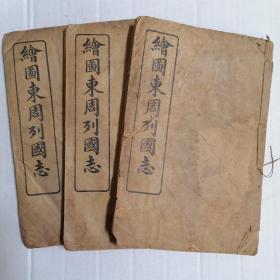 繪圖東周列國志
繪圖東周列國志
繪圖東周列國志